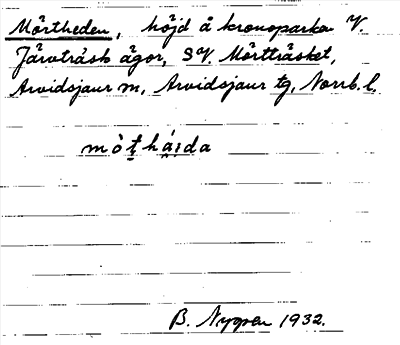 Mörtheden, höjd å kronoparken V.
Järvträsk ägor, SV. Mörtträsket,
Arvidsjaur sn, Arvidsjaur tg, Norrb. l.
mòṭhái̯da
B. Nygren 1932.